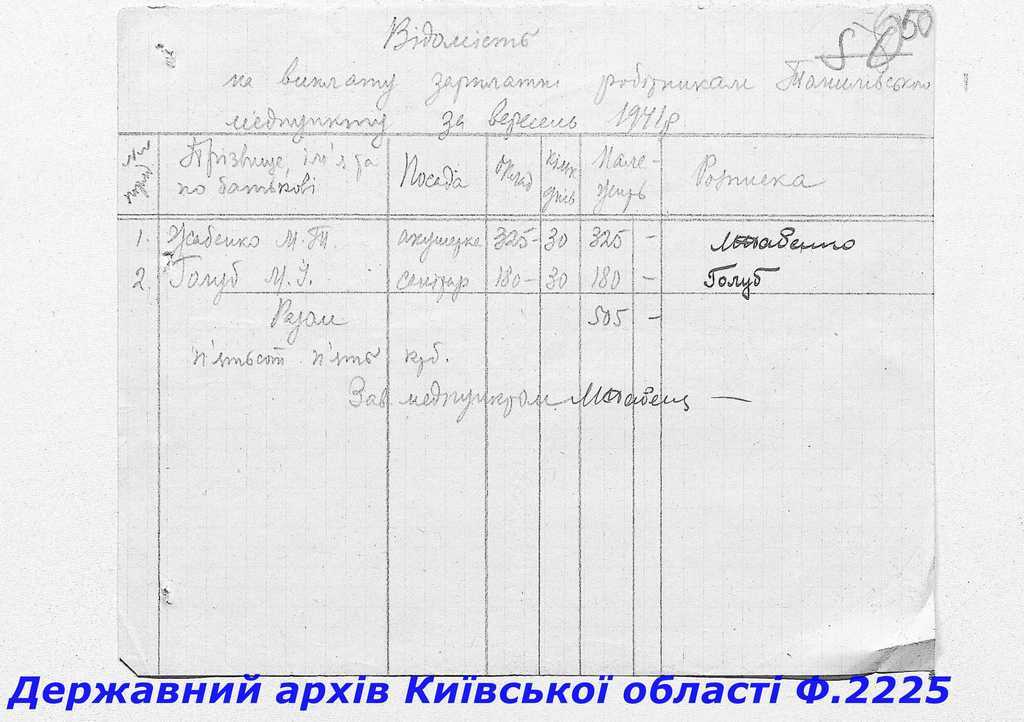 Відомість
50
58
на виплату зарплатні робітникам
медпункту за вересень 1941 р
Прізвище, ім'я та по батькові Посада Оклад кільк днів Нале-жить Розписка
1. М. акушерка 325- 30 325 -
2. Голуб М. санітар 180- 30 180 - Голуб
Разом 505 -
п'ятьсот п'ять крб.
Зав медпунктом
Державний архів Київської області Ф.2225